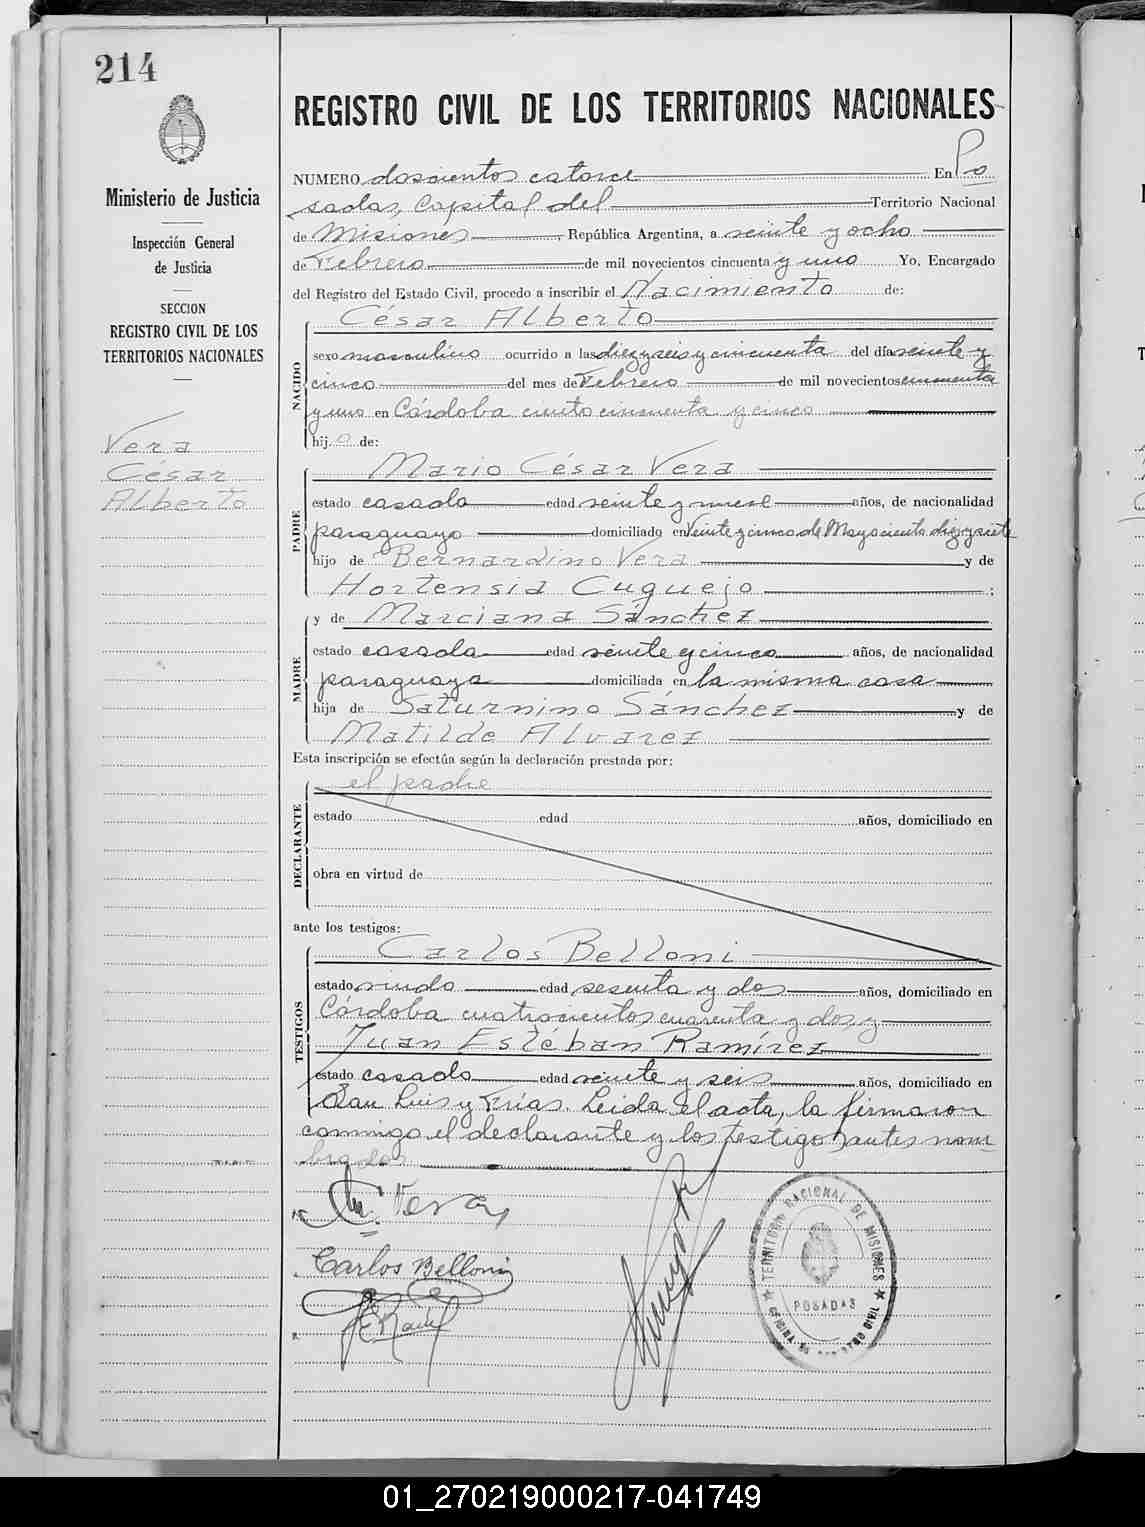 214
Ministerio de Justicia
Inspección General
de Justicia
SECCION
REGISTRO CIVIL DE LOS
TERRITORIOS NACIONALES
Vera
César
Alberto
REGISTRO CIVIL DE LOS TERRITORIOS NACIONALES
NUMERO doscientos catorce En Po
sadas, Capital del Territorio Nacional
de Misiones, República Argentina, a veinte y ocho
de Febrero de mil novecientos cincuenta y uno Yo, Encargado
del Registro del Estado Civil, procedo a inscribir el Nacimiento de:
NACIDO
César Alberto
sexo masculino ocurrido a las diez y seis y cincuenta del día veinte y
cinco del mes de Febrero de mil novecientos cincuenta
y uno en Córdoba ciento cincuenta y cinco
hijo de:
PADRE
Mario César Vera
estado casado edad veinte y nueve años, de nacionalidad
paraguayo domiciliado en Veinte y cinco de Mayo ciento diez y siete
hijo de Bernardino Vera y de
Hortensia Cuguejo ;
MADRE
y de Marciana Sánchez
estado casada edad veinte y cinco años, de nacionalidad
paraguaya domiciliada en la misma casa
hija de Saturnino Sánchez y de
Matilde Alvarez
Esta inscripción se efectúa según la declaración prestada por:
DECLARANTE
el padre
estado edad años, domiciliado en
obra en virtud de
ante los testigos:
TESTIGOS
Carlos Belloni
estado viudo edad sesenta y dos años, domiciliado en
Córdoba cuatrocientos cuarenta y dos y
Juan Estéban Ramírez
estado casado edad veinte y seis años, domiciliado en
San Luis y Frías. Leida el acta, la firmaron
conmigo el declarante y los testigos antes nom
brados
Vera
Carlos Belloni
TERRITORIO NACIONAL DE MISIONES
POSADAS
01_270219000217-041749